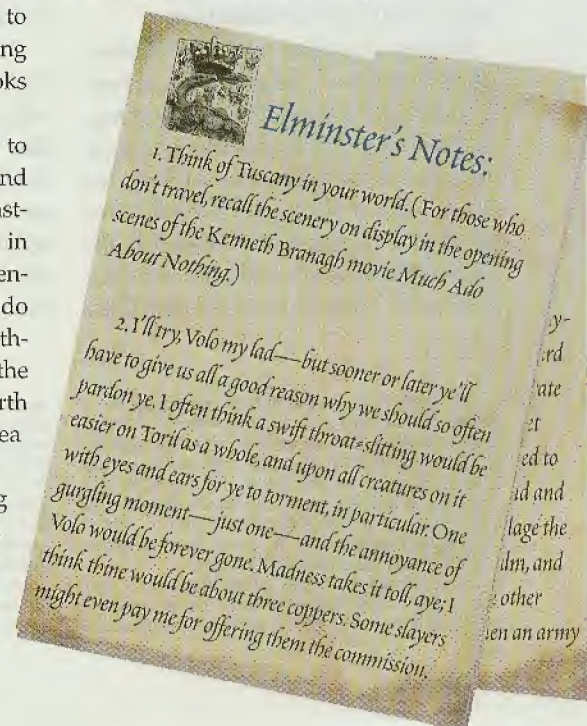 to
ing
oks
to
nd
ast-
in
en-
do
th-
the
rth
ea
g
Elminster's Notes:
1. Think of Tuscany in your world. (For those who
don't travel, recall the scenery on display in the opening
scenes of the Kenneth Branagh movie Much Ado
About Nothing.)
2. I'll try, Volo my lad—but sooner or later ye'll
have to give us all a good reason why we should so often
pardon ye. I often think a swift throat-slitting would be
easier on Toril as a whole, and upon all creatures on it
with eyes and ears for ye to torment, in particular. One
gurgling moment—just one—and the annoyance of
Volo would be forever gone. Madness takes it toll, aye; I
think thine would be about three coppers. Some slayers
might even pay me for offering them the commission.
y-
rd
ate
et
ed to
id and
lage the
lm, and
other
en an army